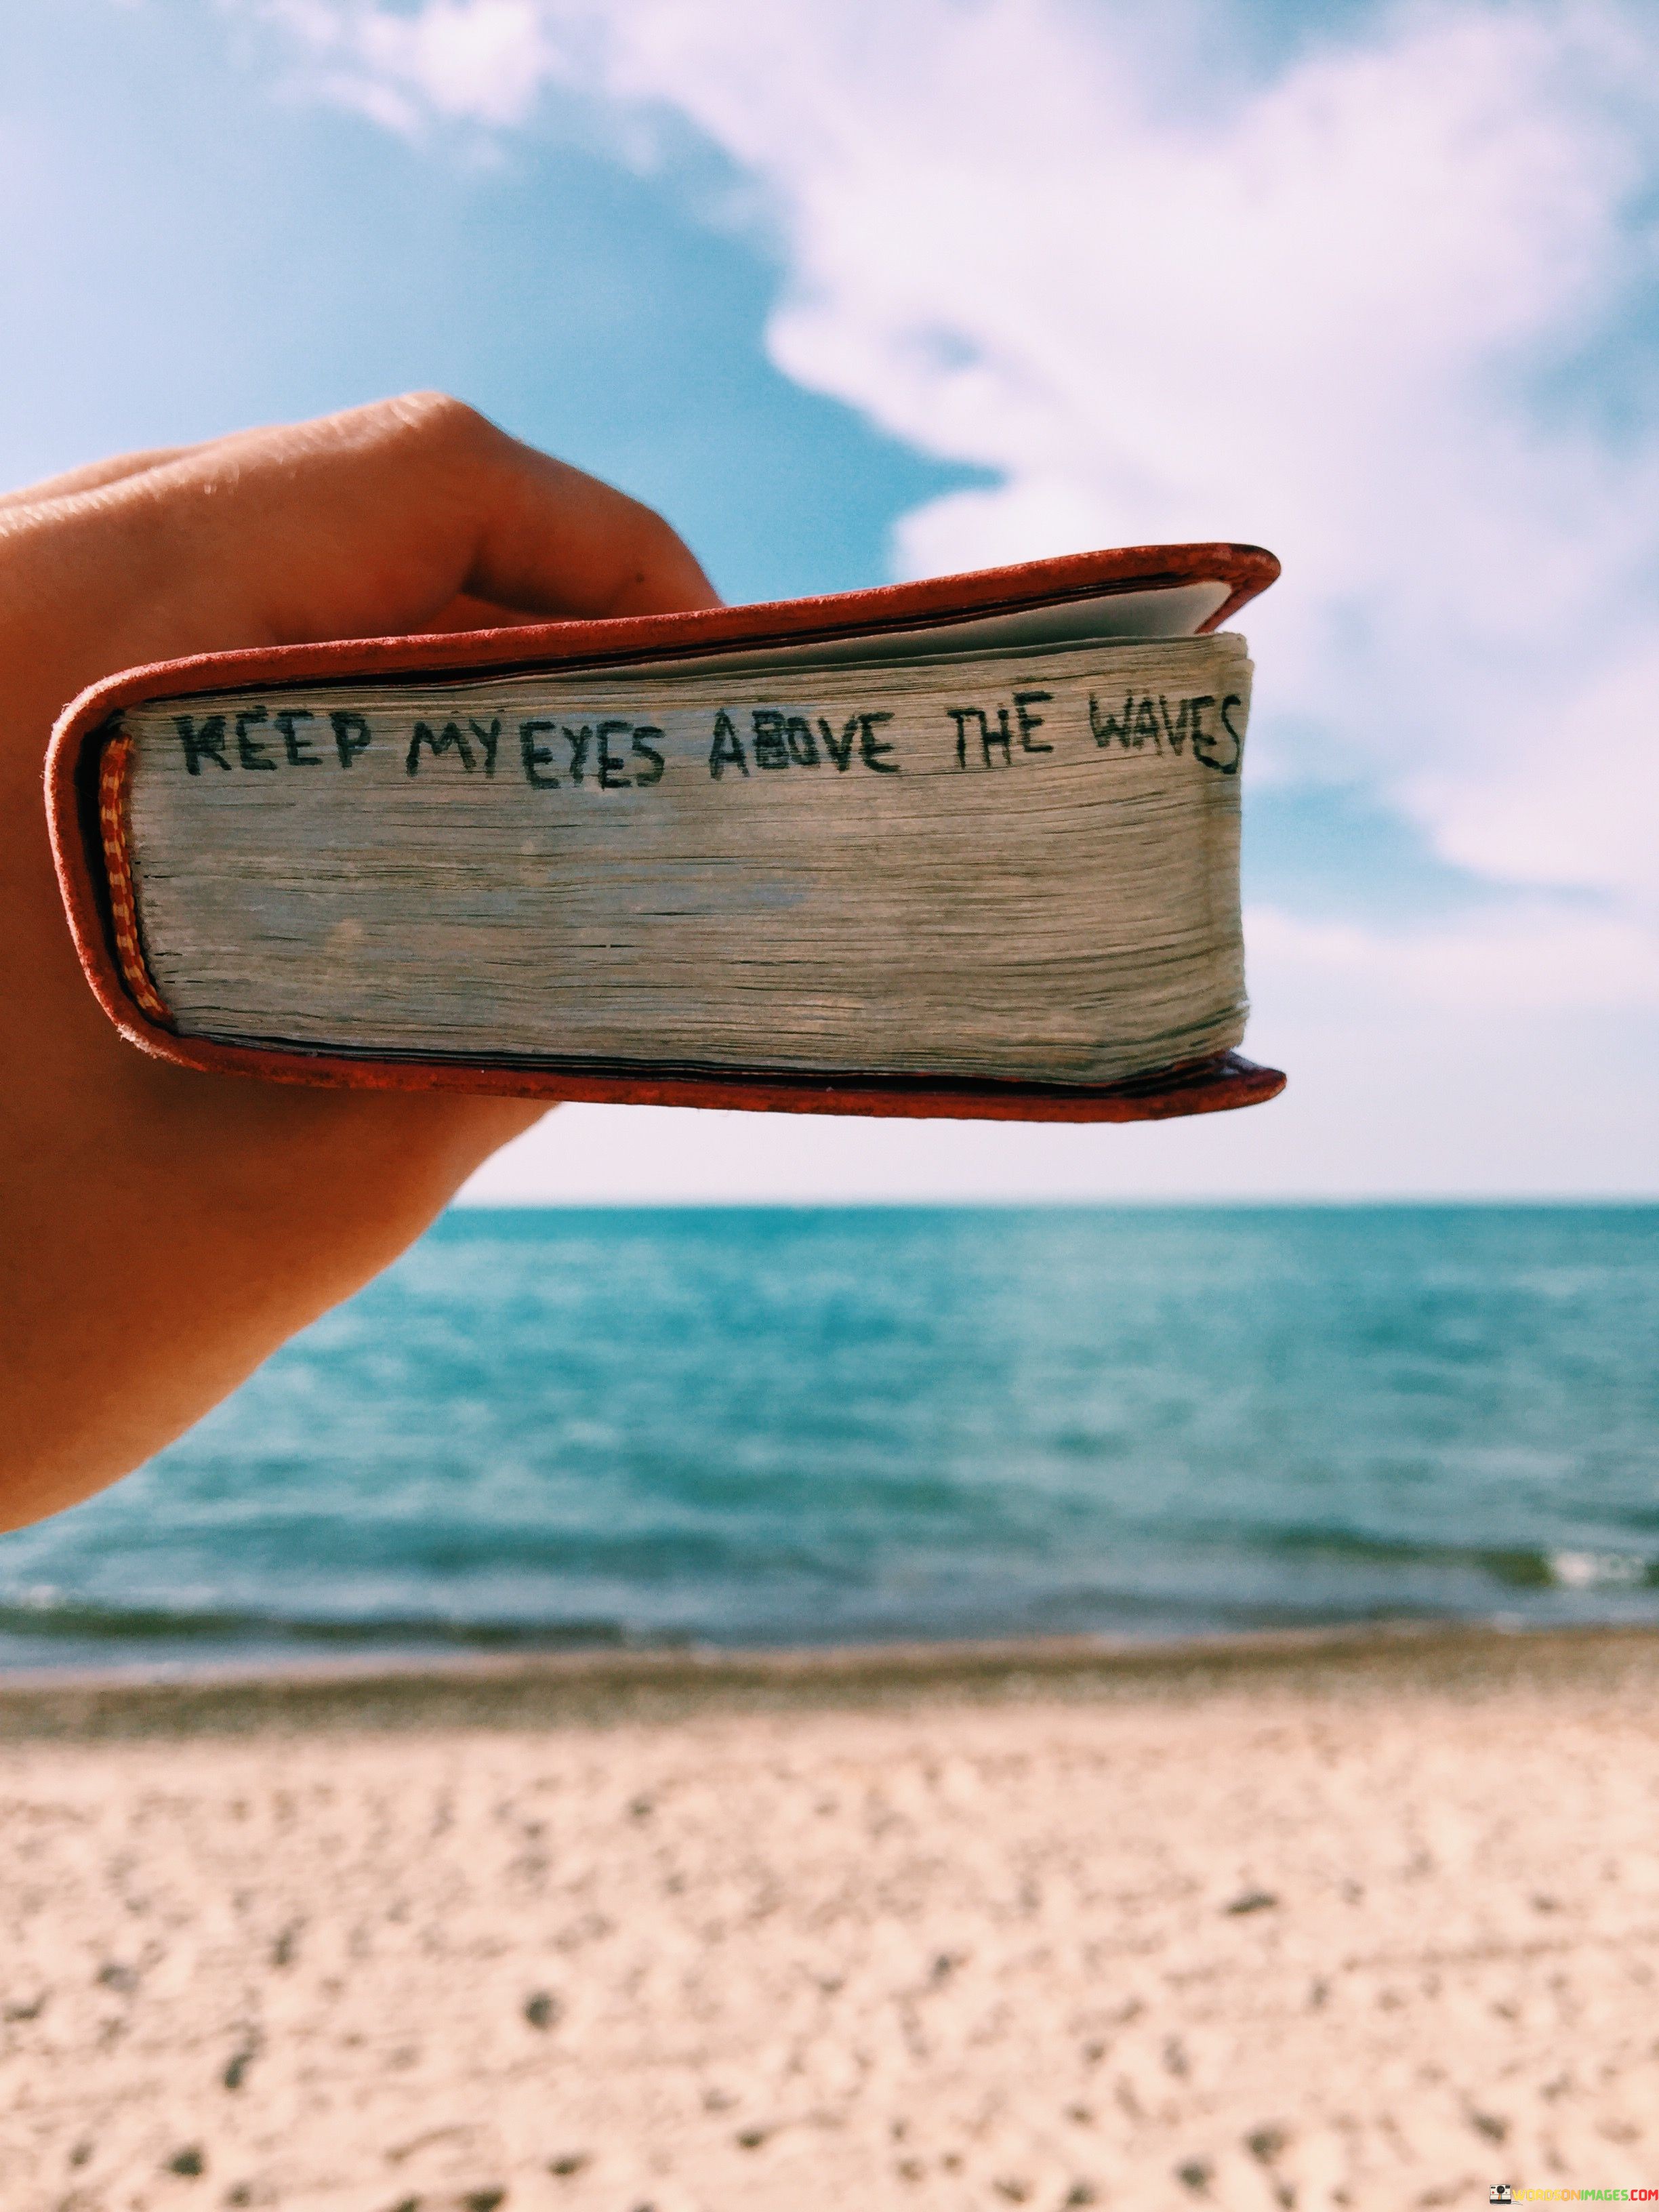 KEEP MY EYES ABOVE THE WAVES
WORDSONIMAGES.COM